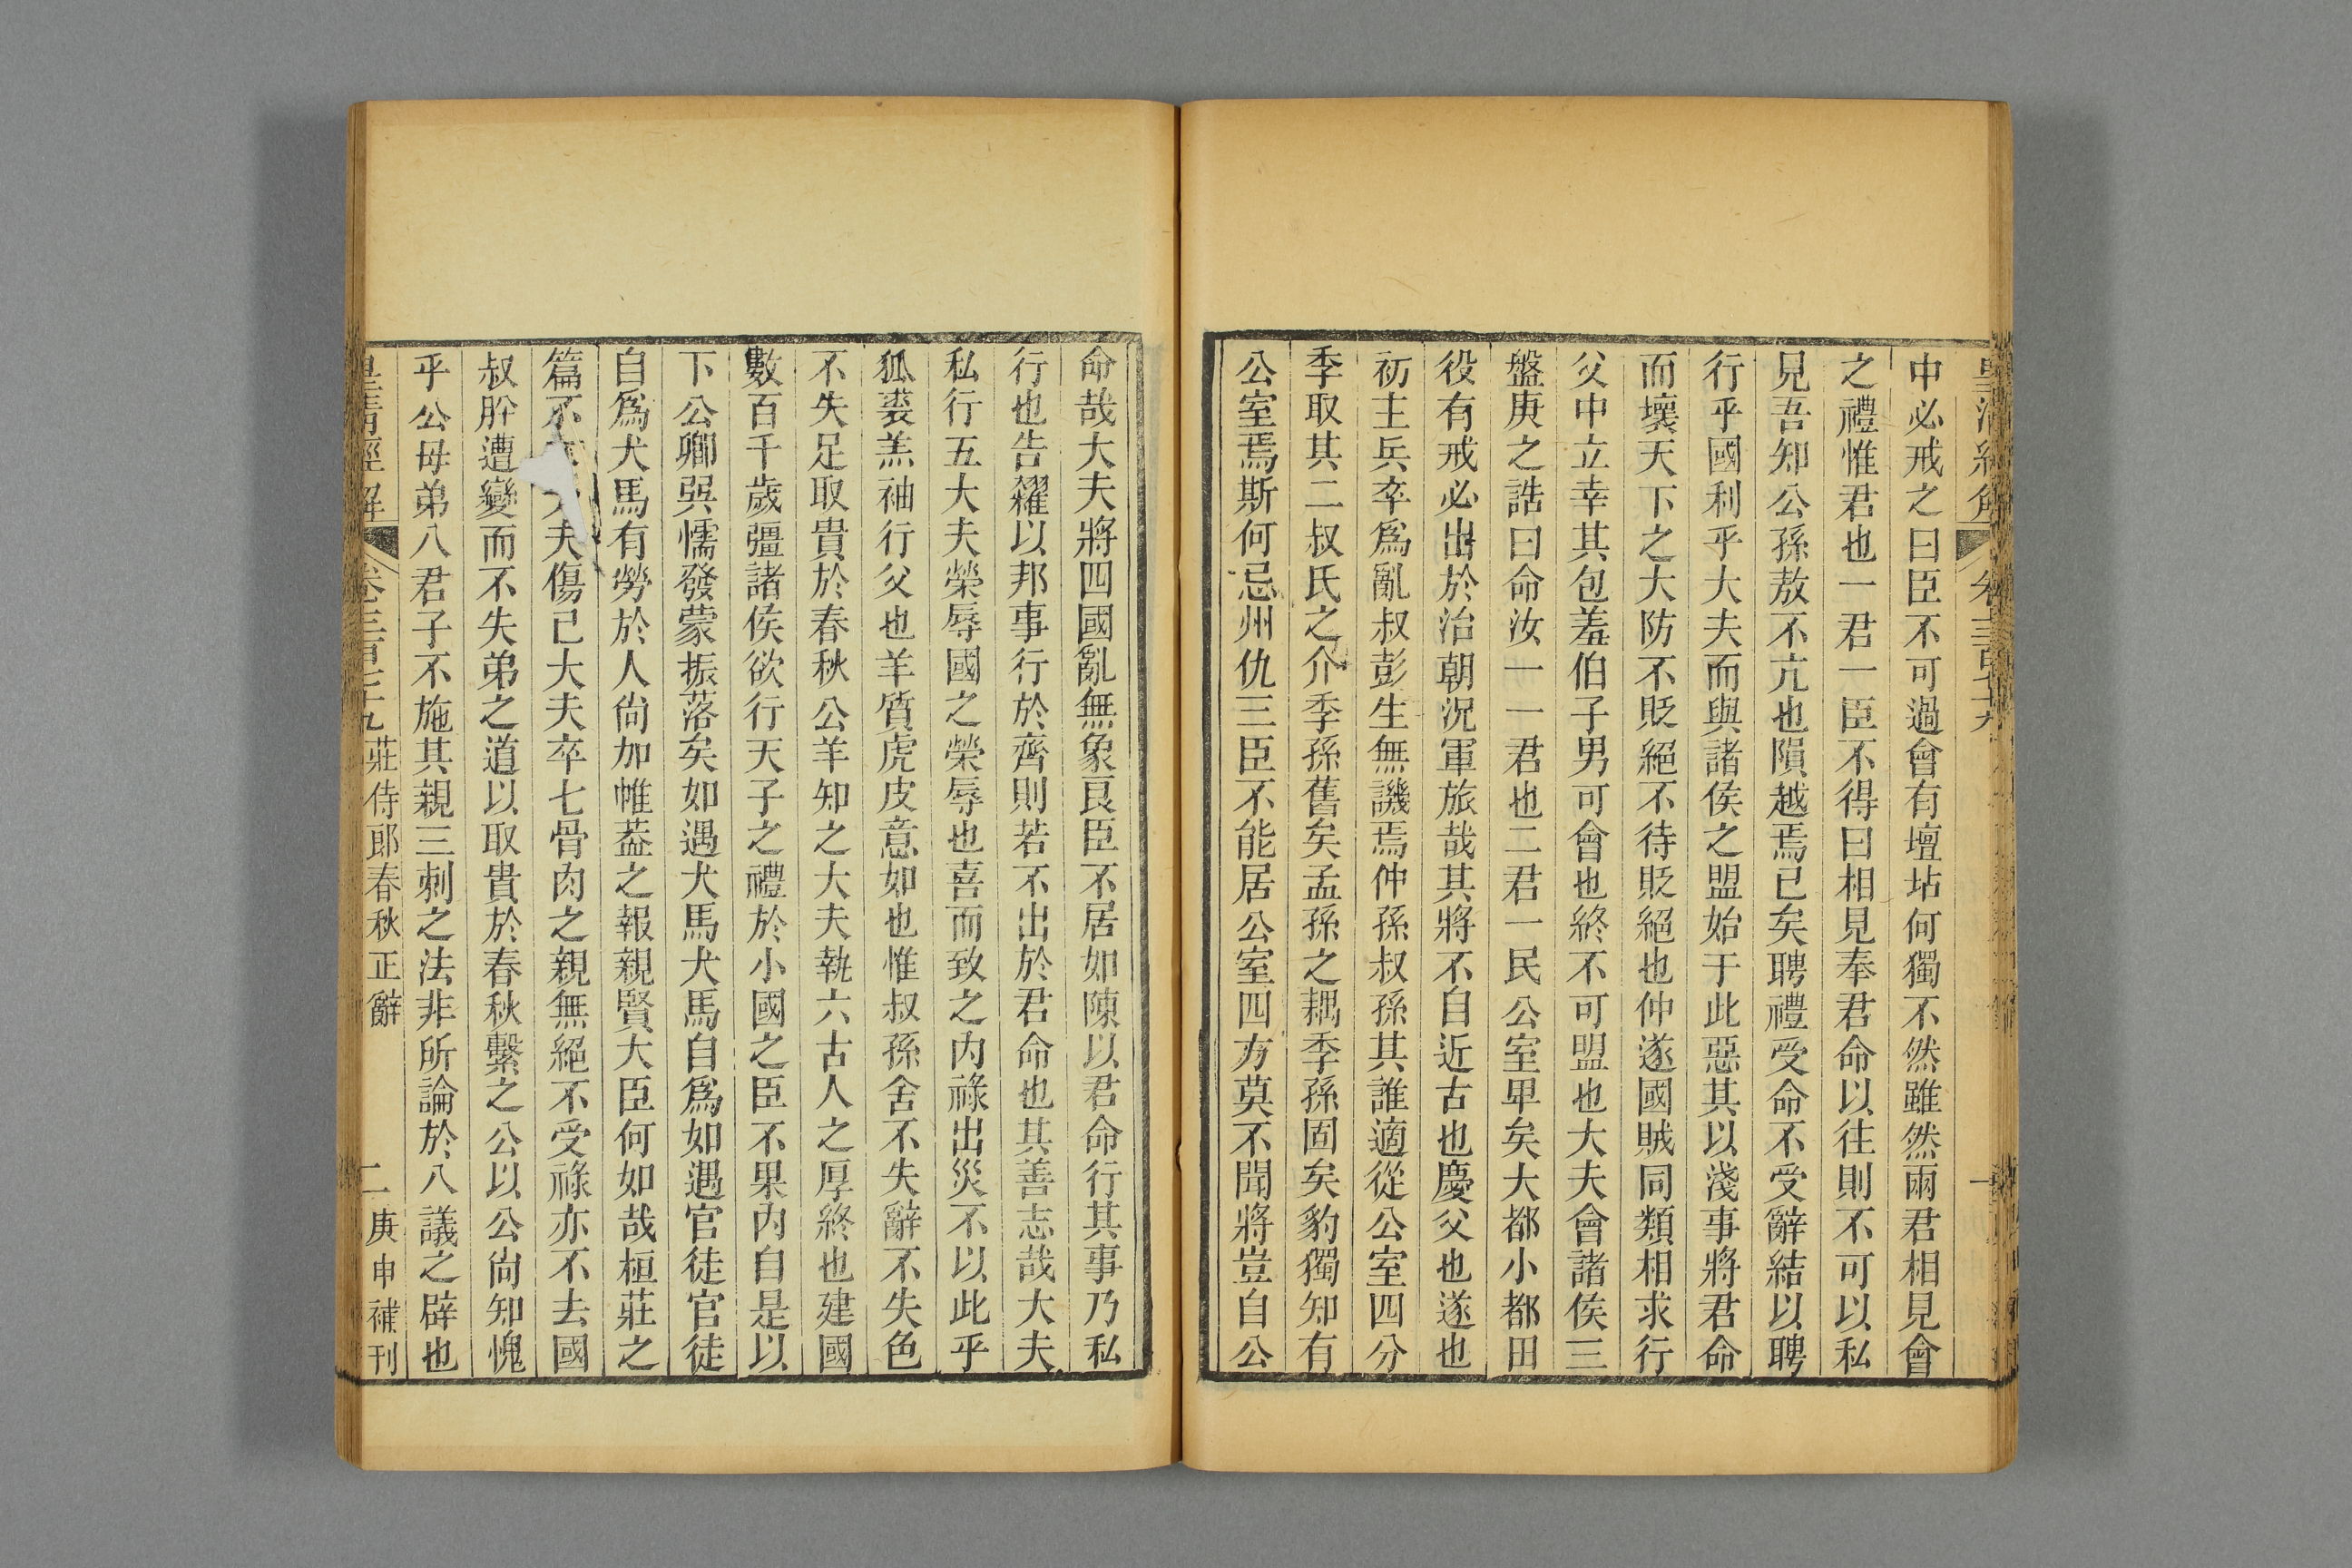 皇清經解 卷三百七十九 一
中必戒之曰臣不可過會有壇坫何獨不然雖然兩君相見會
之禮惟君也一君一臣不得曰相見奉君命以往則不可以私
見吾知公孫敖不亢也隕越焉已矣聘禮受命不受辭結以聘
行乎國利乎大夫而與諸侯之盟始于此惡其以淺事將君命
而壞天下之大防不貶絕不待貶絕也仲遂國賊同類相求行
父中立幸其包羞伯子男可會也終不可盟也大夫會諸侯三
盤庚之誥曰命汝一一君也二君一民公室卑矣大都小都田
役有戒必出於治朝況軍旅哉其將不自近古也慶父也遂也
初主兵卒爲亂叔彭生無譏焉仲孫叔孫其誰適從公室四分
季取其二叔氏之介季孫舊矣孟孫之耦季孫固矣豹獨知有
公室焉斯何忌州仇三臣不能居公室四方莫不聞將豈自公
命哉大夫將四國亂無象良臣不居如陳以君命行其事乃私
行也告糴以邦事行於齊則若不出於君命也其善志哉大夫
私行五大夫榮辱國之榮辱也喜而致之內祿出災不以此乎
狐裘羔袖行父也羊質虎皮意如也惟叔孫舍不失辭不失色
不失足取貴於春秋公羊知之大夫執六古人之厚終也建國
數百千歲彊諸侯欲行天子之禮於小國之臣不果內自是以
下公卿巽懦發蒙振落矣如遇犬馬犬馬自爲如遇官徒官徒
自爲犬馬有勞於人尙加帷葢之報親賢大臣何如哉桓莊之
篇不大夫傷已大夫卒七骨肉之親無絕不受祿亦不去國
叔肸遭變而不失弟之道以取貴於春秋繫之公以公尙知愧
乎公母弟八君子不施其親三刺之法非所論於八議之辟也
皇清經解 卷三百七十九 莊侍郎春秋正辭 二 庚申補刊